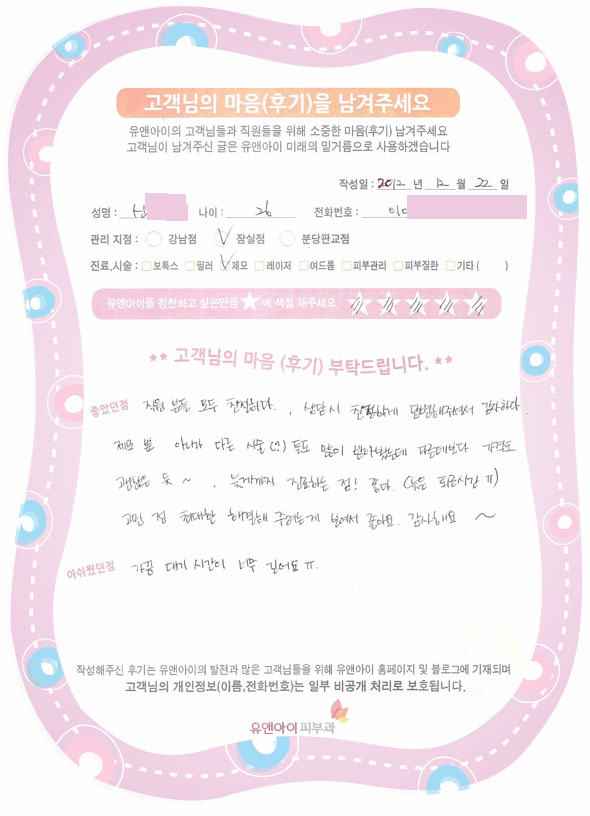 고객님의 마음(후기)을 남겨주세요
유앤아이의 고객님들과 직원들을 위해 소중한 마음(후기) 남겨주세요
고객님이 남겨주신 글은 유앤아이 미래의 밑거름으로 사용하겠습니다
작성일 : 2012 년 12 월 22 일
성명 : 신 나이 : 26 전화번호 : 010
관리 지점 : 강남점 잠실점 분당판교점
진료,시술 : 보톡스 필러 제모 레이저 여드름 피부관리 피부질환 기타 ( )
유앤아이를 칭찬하고 싶은만큼 ★에 색칠 해주세요.
** 고객님의 마음 (후기) 부탁드립니다. **
좋았던점 직원 분들 모두 친절하다. , 상담시 친절하게 답변해주셔서 감사하다.
제모 뿐 아니라 다른 시술(?) 등도 많이 받아봤는데 다른데보다 가격도
괜찮은 듯 ~ , 늦게까지 진료하는 점! 좋다. (늦은 퇴근시간 ㅠ)
고민 점 최대한 해결해 주려는게 보여서 좋아요. 감사해요 ~
아쉬웠던점 가끔 대기 시간이 너무 길어요 ㅠ.
작성해주신 후기는 유앤아이의 발전과 많은 고객님들을 위해 유앤아이 홈페이지 및 블로그에 기재되며
고객님의 개인정보(이름,전화번호)는 일부 비공개 처리로 보호됩니다.
유앤아이피부과